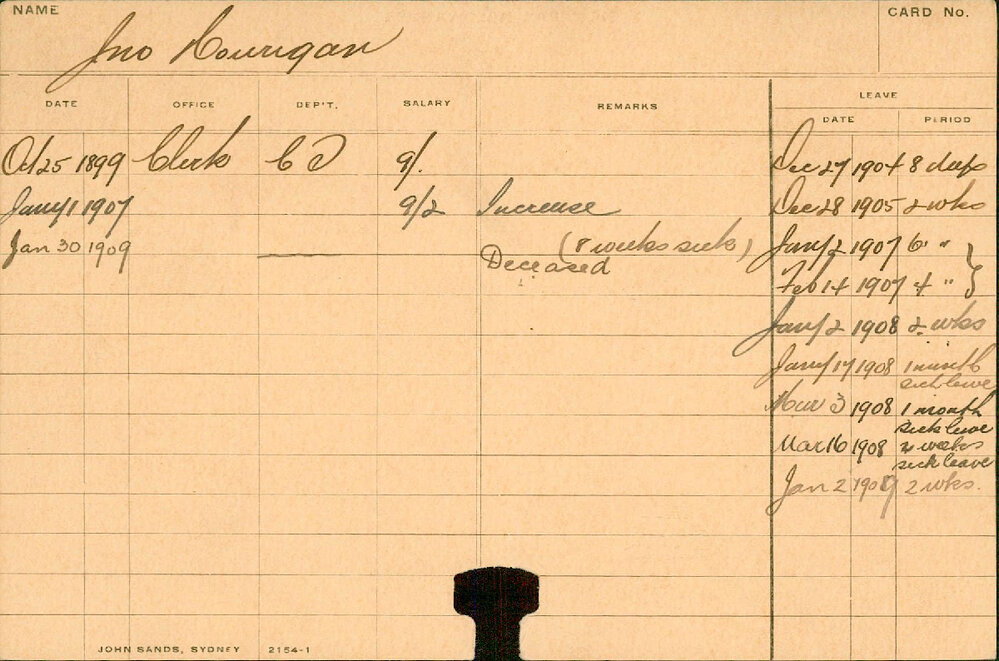 NAME
CARD No.
Jno Hourigan
DATE OFFICE DEP'T. SALARY REMARKS LEAVE
DATE PERIOD
Oct 25 1899 Clerk C D 9/. Dec 27 1904 8 days
Jany 1 1907 9/2 Increase Dec 28 1905 2 wks
Jan 30 1909 (8 weeks sick) Jany 2 1907 6 "
Deceased
Feb 14 1907 4 "
Jany 2 1908 2 wks
Jany 17 1908 1 month
sick leave
Mar 3 1908 1 month
sick leave
Mar 16 1908 weeks
sick leave
Jan 2 1909 2 wks.
JOHN SANDS, SYDNEY 2154-1